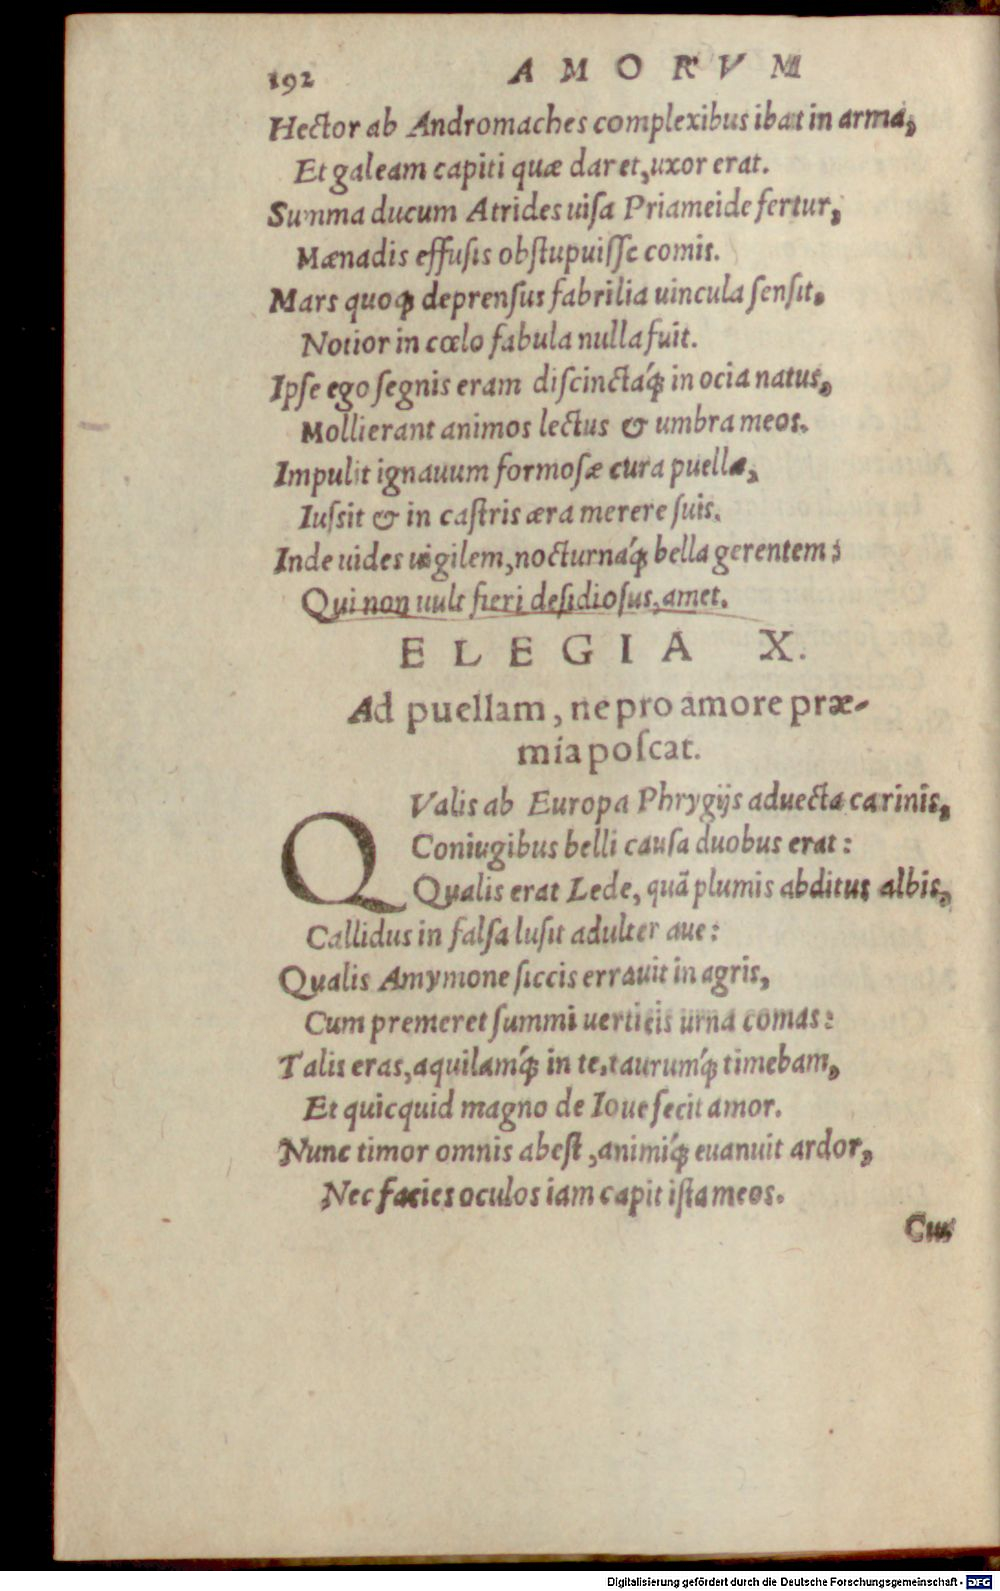 192 AMORVM
Hector ab Andromaches complexibus ibat in arma,
Et galeam capiti quæ daret, uxor erat.
Summa ducum Atrides uiſa Priameide fertur,
Mænadis effuſis obſtupuiſſe comis.
Mars quoq́ꝫ deprenſus fabrilia uincula ſenſit,
Notior in cœlo fabula nulla fuit.
Ipſe ego ſegnis eram diſcinctaq́ꝫ in ocia natus,
Mollierant animos lectus & umbra meos.
Impulit ignauum formoſæ cura puellæ,
Iuſsit & in caſtris æra merere ſuis.
Inde uides uigilem, nocturnaq́ꝫ bella gerentem:
Qui non uult fieri deſidioſus, amet.
ELEGIA X.
Ad puellam, ne pro amore præ-
mia poſcat.
QValis ab Europa Phrygijs aduecta carinis,
Coniugibus belli cauſa duobus erat:
Qualis erat Lede, quā plumis abditus albis,
Callidus in falſa luſit adulter aue:
Qualis Amymone ſiccis errauit in agris,
Cum premeret ſummi uerticis urna comas:
Talis eras, aquilamq́ꝫ in te, taurumq́ꝫ timebam,
Et quicquid magno de Ioue fecit amor.
Nunc timor omnis abeſt, animiq́ꝫ euanuit ardor,
Nec facies oculos iam capit iſta meos.
Cur
Digitalisierung gefördert durch die Deutsche Forschungsgemeinschaft - DFG